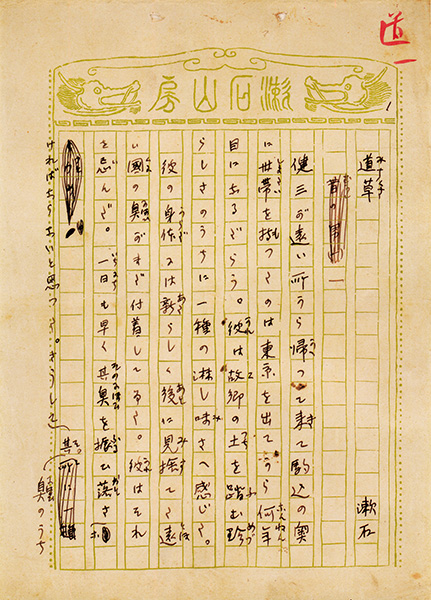 道一
漱石山房
1
道草　漱石
一
健三が遠い所から帰つて来て駒込の奥
に世帯を持つたのは東京を出てから何年
目になるだらう。彼は故郷の土を踏む珍
らしさのうちに一種の淋し味さへ感じた。
彼の身体には新らしく後に見捨てた遠
い國の臭がまだ付着してゐた。彼はそれ
を忌んだ。一日も早く其臭を振ひ落さな
ければならないと思つた。さうして其
臭のうち